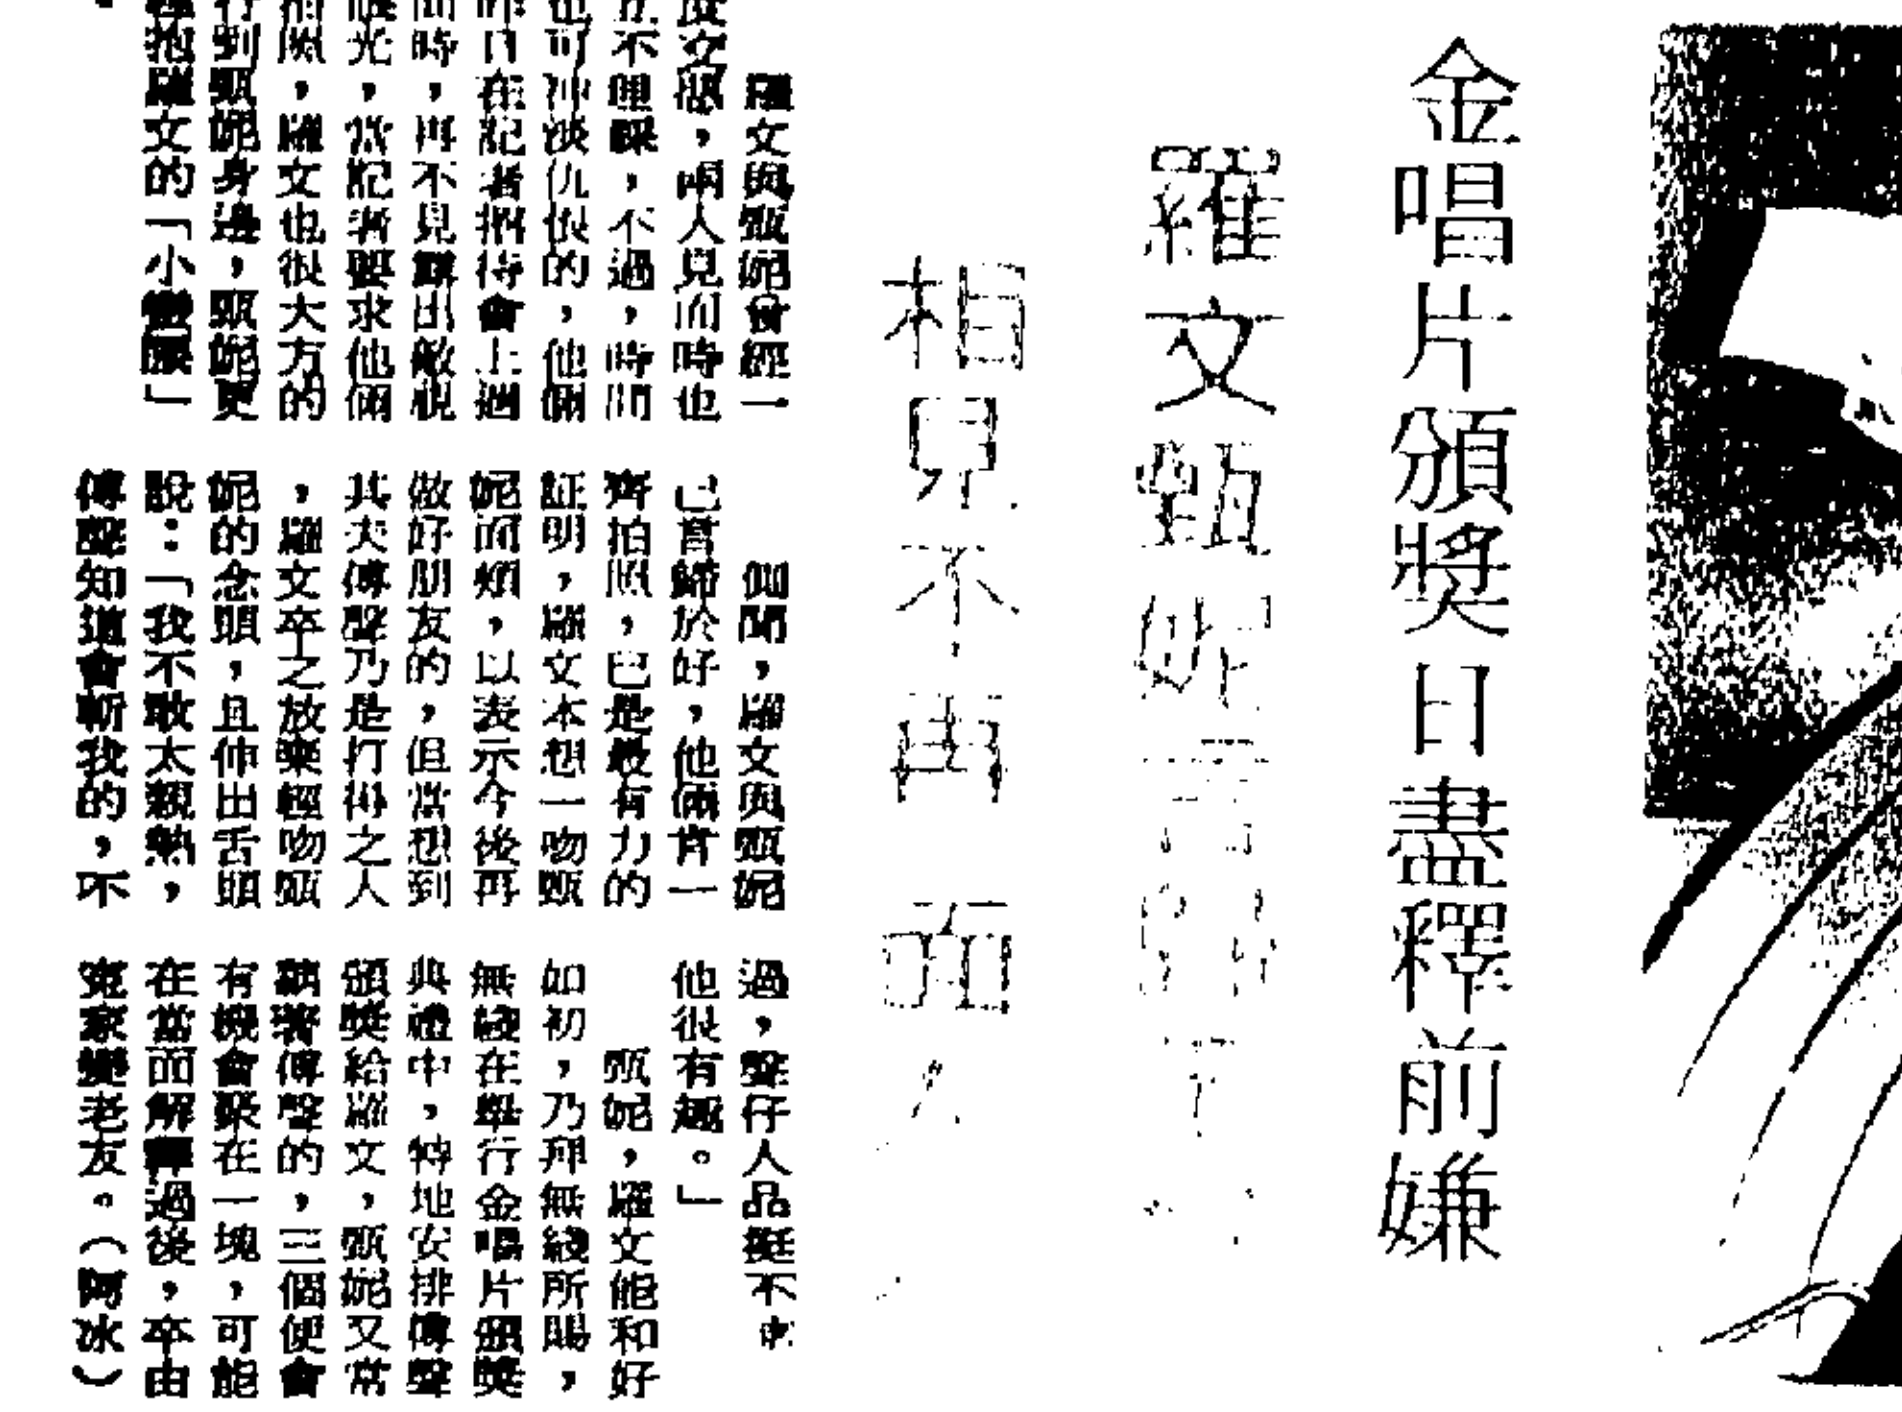 金唱片頒獎日盡釋前嫌
羅文甄妮
相見不再
羅文與甄妮曾經一
度交惡，兩人見面時也
互不理睬，不過，時間
也可沖淡仇恨的，他倆
昨日在記者招待會上週
面時，再不見露出敵視
眼光，當記者要求他倆
拍照，羅文也很大方的
行到甄妮身邊，甄妮更
抱羅文的「小蠻腰」
側聞，羅文與甄妮
已言歸於好，他倆肯一
齊拍照，已是最有力的
証明，羅文本想一吻甄
妮面頰，以表示今後再
做好朋友的，但當想到
其夫傅聲乃是打得之人
，羅文卒之放棄輕吻甄
妮的念頭，且伸出舌頭
說：「我不敢太親熱，
傅聲知道會斬我的，不
過，聲仔人品挺不
他很有趣。」
甄妮，羅文能和好
如初，乃拜無綫所賜，
無綫在舉行金唱片頒獎
典禮中，特地安排傅聲
頒獎給羅文，甄妮又常
耦著傅聲的，三個便會
有機會聚在一塊，可能
在當面解釋過後，卒由
寃家變老友。（阿冰）